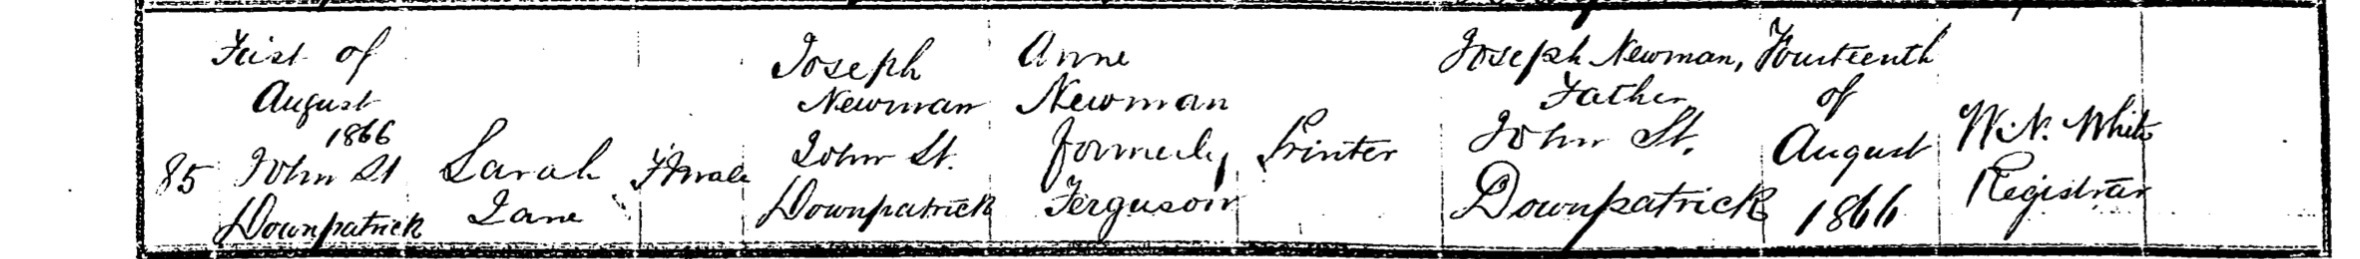 85
First of
August
1866
John St
Downpatrick
Sarah
Jane
Female
Joseph
Newman
John St.
Downpatrick
Anne
Newman
formerly
Ferguson
Printer
Joseph Newman,
Father
John St.
Downpatrick
Fourteenth
of
August
1866
W. N. White
Registrar